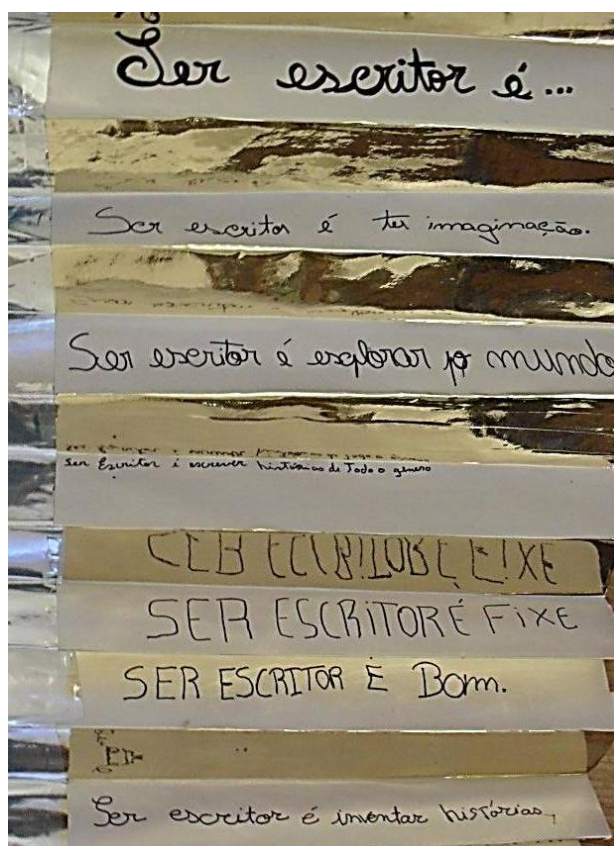 Ser escritor é...
Ser escritor é ter imaginação.
Ser escritor é explorar o mundo
Ser Escritor é escrever histórias de Todo o género
SER ESCRITOR É FIXE
SER ESCRITOR É Bom.
Ser escritor é inventar histórias,